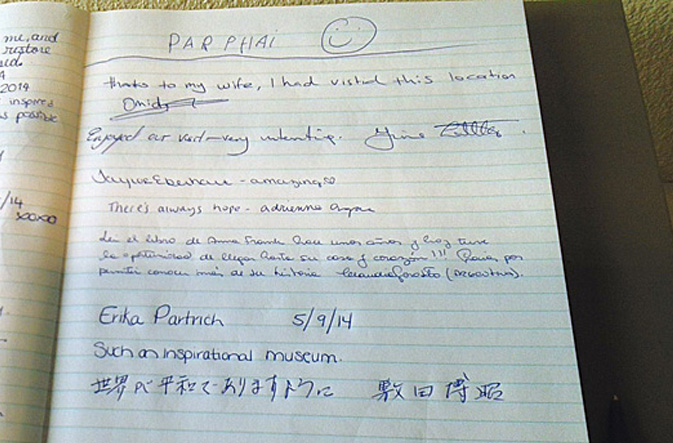 me, and
restore
2014
inspired
as possible
/14
xoxoxo
PARPHAI
thanks to my wife, I had visited this location
Omid
Enjoyed our visit – very interesting.
- amazing
There's always hope - adrienne
Lei el libro de Anna Frank hace unos años y hoy tuve
la oportunidad de llegar hasta su casa y corazón!!! Gracias por
permitir conocer más de su historia (ARGENTINA).
Erika Partrich 5/9/14
Such an inspirational museum.
世界が平和でありますように 敷田博昭